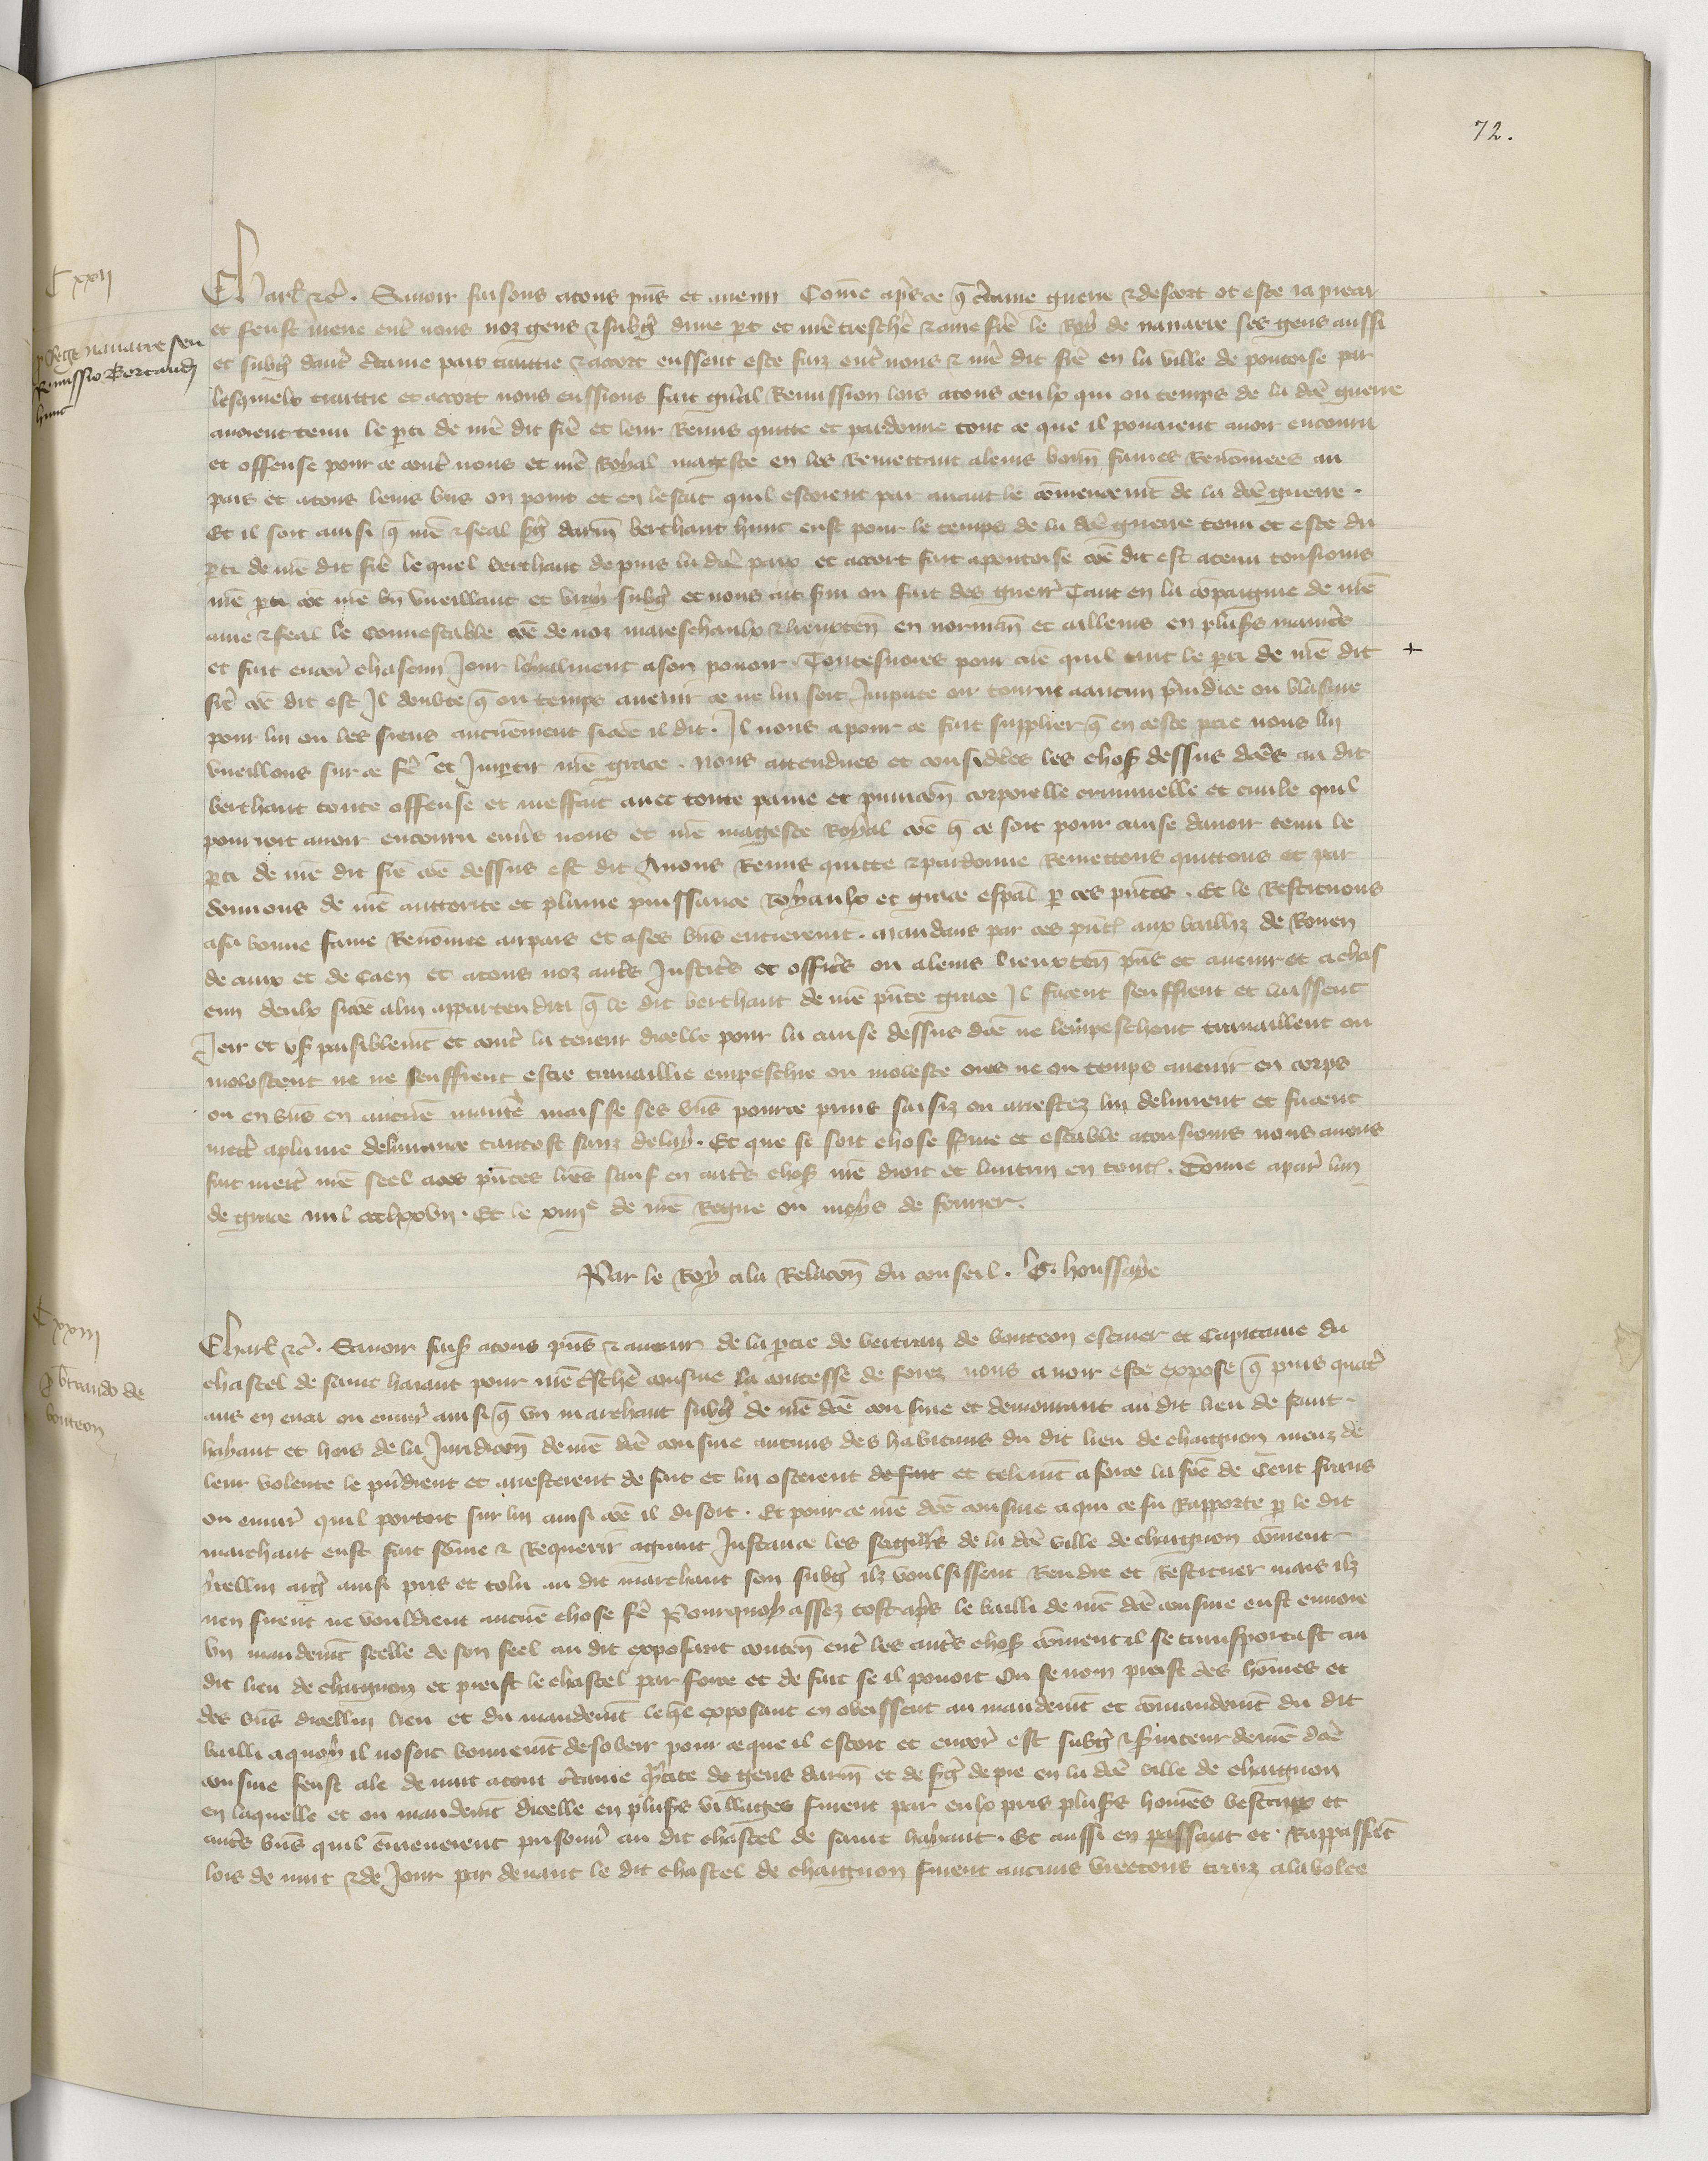 72.
C xxii
p Rege navarre seu
Remissio Bertaudi
hunc
Charl. &c. Savoir faisons a tous pns et avenir Come apres ce q certaine guerre & descort ot este ia piecar
et feust mene entre nous noz gens & subg dune pt et nre treschr & ame frere le Roy de navarre ses gens aussi
et subg dautre certaine paix traittie & acort eussent este faiz entre nous & nre dit frere en la ville de pontoise par
lesquelx traittie et accort nous eussions fait gnal Remission lors a tous ceulx qui ou temps de la dce guerre
avoient tenu le pti de nre dit frere et leur Remis quitte et pardonne tout ce que il povoient avoir encouru
et offense pour ce contre nous et nre Royal mageste en les Remettant a leurs bonn fames Renomees au
pais et a tous leurs bns ou point et en lestat quil estoient par avant le comencemt de la dce guerre.
Et il soit ainsi q nre & feal serg darm berthaut hunc eust pour le temps de la dce guerre tenu et este du
pti de nre dit frere le quel berthaut depuis la dce paix et accort fait a pontoise coe dit est a tenu tousiours
nre pti coe nre bn vueillant et vray subg et nous ait servi ou fait des guerr Tant en la compaignie de nre
ame & feal le connestable coe de noz mareschaulx & lieuxten en normand et ailleurs en pluss manieres
et fait encor chascun Jour loyalment a son povoir. Toutesvoies pour ce quil tint le pti de nre dit
frere coe dit est Il doubte q ou temps avenir ce ne lui soit Impute ou tourne a aucun preiudice ou blasme
pour lui ou les siens aucunement sicoe il dit. Il nous a pour ce fait supplier q en ceste ptie nous lui
vueillons sur ce fe et Imptir nre grace. Nous attendues et considerees les chos dessus dces au dit
berthaut toute offense et meffait avec toute paine et punicon corporelle criminelle et civile quil
pourroit avoir encouru envrs nous et nre mageste Royal coe q ce soit pour cause davoir tenu le
pti de nre dit frere coe dessus est dit Avons Remis quitte & pardonne Remettons quittons et par
donnons de nre auttorite et plaine puissance Royaulx et grace espal p ces pntes. Et le Restituons
a sa bonne fame Renomee au pais et a ses bns entierement. Mandans par ces pnt aux bailliz de Rouen
de caux et de Caen et a tous noz autres Justicrs et officrs ou a leurs lieuxten pns et avenir et a chas
cun deulx sicoe a lui appartendra q le dit berthaut de nre pnte grace Il facent seuffrent et laissent
Joir et us paisiblemt et contre la teneur dicelle pour la cause dessus dce ne lempeschent travaillent ou
molestent ne ne seuffrent estre travaillie empeschie ou moleste ores ne ou temps avenir en corps
ou en bns en aucune maniere mais se ses bns pour ce prins saisiz ou arrestez lui delivrent et facent
mettre a plaine delivrance tantost sanz delay. Et que se soit chose ferme et estable a tousiours nous avons
fait mettre nre seel a ces pntes lres sauf en autres chos nre droit et lautrui en tout. Donne a paris lan
de grace mil ccclxxvii. Et le xiiiie de nre Regne ou moys de fevrier.
Par le Roy a la Relacon du conseil. G. houssaye
C xxiii
p bertrando de
bouteon
Charl &c. Savoir fais a tous pns & avenir de la ptie de bertran de bouteon escuier et Capitaine du
chastel de saint haiant pour nre treschr cousine la contesse de forez nous avoir este expose q puis quatre
ans en enca ou environ ainsi q un marchant subg de nre dce cousine et demourant au dit lieu de saint
hayant et hors de la Juridicon de nre dce cousine aucuns des habitans du dit lieu de chaignon meuz de
leur volente le prindrent et arresterent de fait et lui osterent de fait et telemt a force la soe de Cent frans
ou environ quil portoit sur lui ainsi coe il disoit. Et pour ce nre dce cousine a qui ce fu Rapporte p le dit
marchant eust fait some & Requerir a grant Instance les seigrs de la dce ville de chaignon coment
ycellui arg ainsi pris et tolu au dit marchant son subg ilz voulsissent Rendre et Restituer mais ilz
nen firent ne vouldrent aucune chose fe Pourquoy assez tost apres le bailli de nre dce cousine eust envoie
un mandemt seelle de son seel au dit exposant conten entre les autres chos coment il se transportast au
dit lieu de chaignon et preist le chastel par force et de fait se il povoit Ou se non preist des homes et
des bns dicellui lieu et du mandemt le quel exposant en obeissent au mandemt et comandemt du dit
bailli a quoy il nosoit bonnement desobeir pour ce que il estoit et encore est subg & serviteur de nre dce
cousine feust ale de nuit a tout certaine qntite de gens darm et de serg de pie en la dce ville de chaignon
en laquelle et ou mandemt dicelle en pluss villages furent par eulx pris pluss homes bestiaux et
autres bns quil emmenerent prisonn au dit chastel de saint hayant. Et aussi en passant et Rappassant
lors de nuit & de Jour par devant le dit chastel de chaignon furent aucuns viretons traiz a la volee